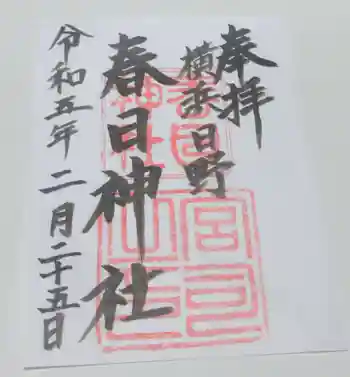 奉拝
横浜日野
春日神社
令和五年二月二十五日
春日神社